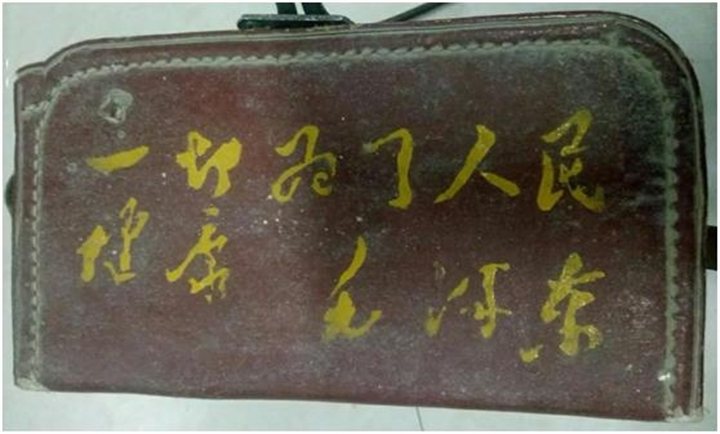 一切为了人民
健康
毛泽东